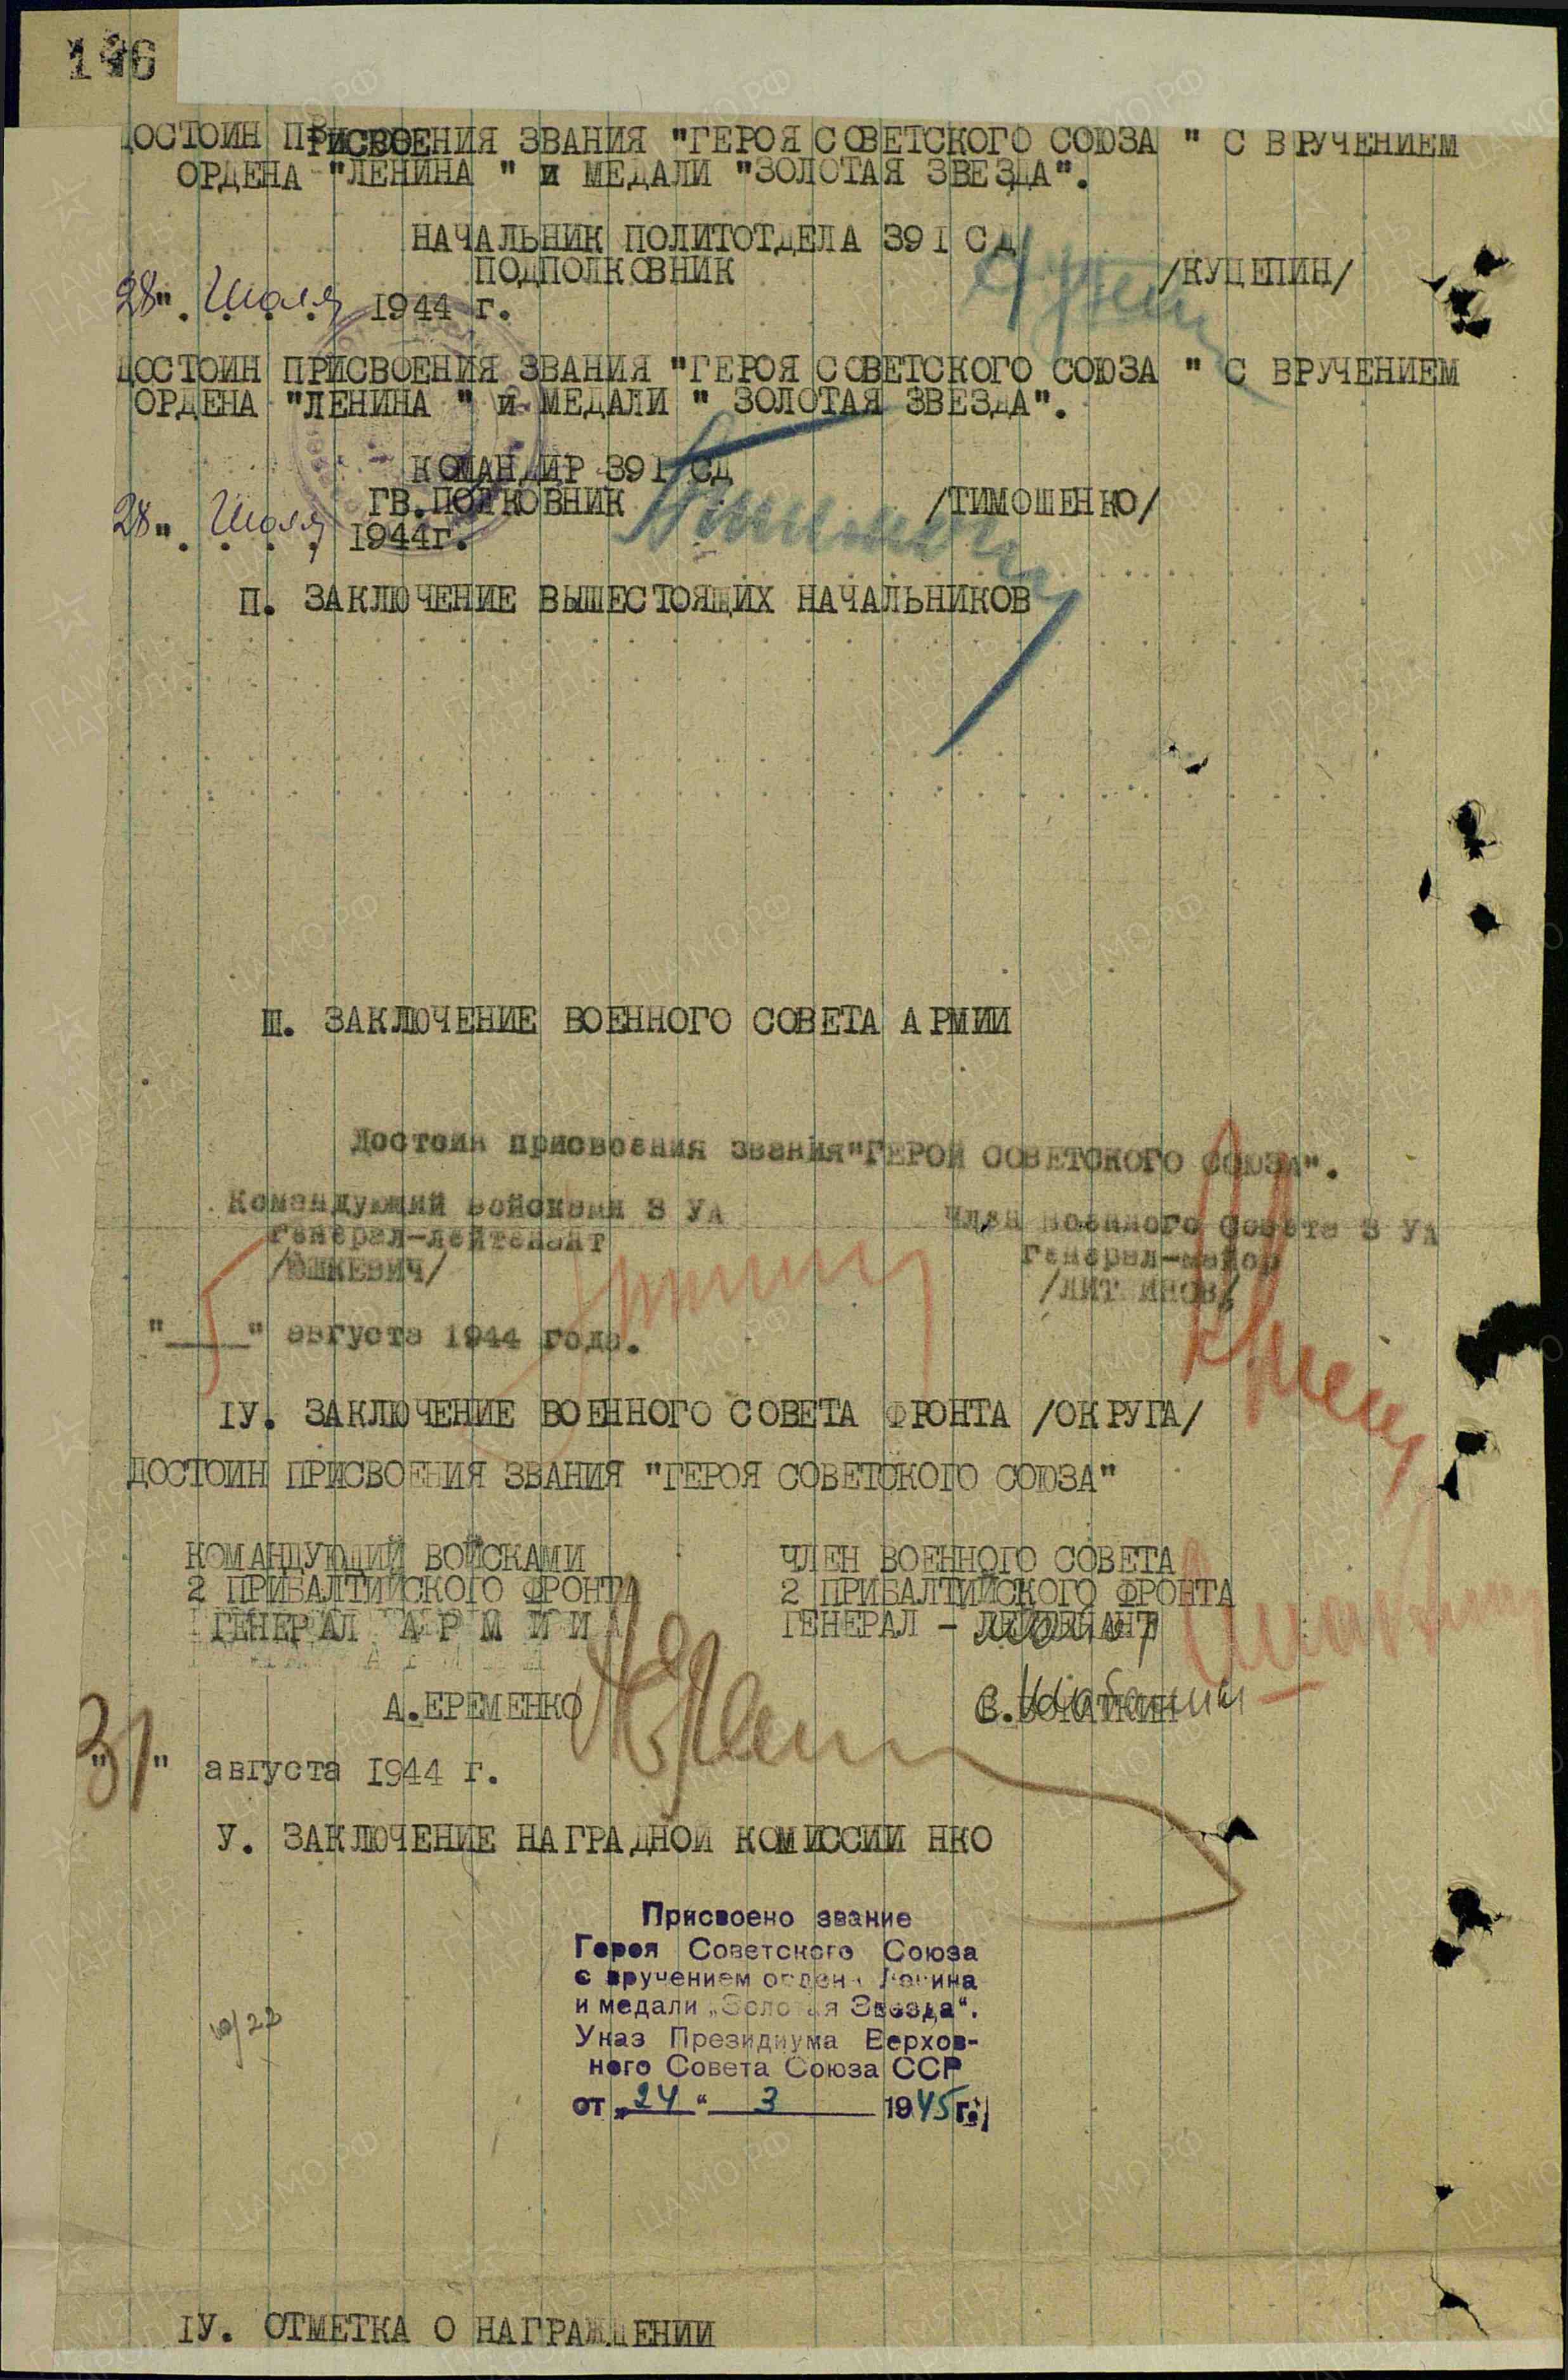 ДОСТОИН ПРИСВОЕНИЯ ЗВАНИЯ "ГЕРОЯ СОВЕТСКОГО СОЮЗА " С ВРУЧЕНИЕМ
ОРДЕНА "ЛЕНИНА " и МЕДАЛИ "ЗОЛОТАЯ ЗВЕЗДА".
НАЧАЛЬНИК ПОЛИТОТДЕЛА 391 СД
ПОДПОЛКОВНИК /КУЦЕПИН/
28". Июля 1944 г.
ДОСТОИН ПРИСВОЕНИЯ ЗВАНИЯ "ГЕРОЯ СОВЕТСКОГО СОЮЗА " С ВРУЧЕНИЕМ
ОРДЕНА "ЛЕНИНА " и МЕДАЛИ " ЗОЛОТАЯ ЗВЕЗДА".
КОМАНДИР 391 СД
ГВ.ПОЛКОВНИК /ТИМОШЕНКО/
28". Июля 1944г.
П. ЗАКЛЮЧЕНИЕ ВЫШЕСТОЯЩИХ НАЧАЛЬНИКОВ
Ш. ЗАКЛЮЧЕНИЕ ВОЕННОГО СОВЕТА АРМИИ
Достоин присвоения звания "ГЕРОЙ СОВЕТСКОГО СОЮЗА".
Командующий войсками 3 УА Член Военного Совета 3 УА
генерал-лейтенант генерал-майор
/ЮШКЕВИЧ/ /ЛИТВИНОВ/
"5" августа 1944 года.
IУ. ЗАКЛЮЧЕНИЕ ВОЕННОГО СОВЕТА ФРОНТА /ОКРУГА/
ДОСТОИН ПРИСВОЕНИЯ ЗВАНИЯ "ГЕРОЯ СОВЕТСКОГО СОЮЗА"
КОМАНДУЮЩИЙ ВОЙСКАМИ ЧЛЕН ВОЕННОГО СОВЕТА
2 ПРИБАЛТИЙСКОГО ФРОНТА 2 ПРИБАЛТИЙСКОГО ФРОНТА
ГЕНЕРАЛ АРМИИ ГЕНЕРАЛ -
А.ЕРЕМЕНКО
"31" августа 1944 г.
У. ЗАКЛЮЧЕНИЕ НАГРАДНОЙ КОМИССИИ НКО
Присвоено звание
Героя Советского Союза
с вручением ордена Ленина
и медали „Золотая Звезда“.
Указ Президиума Верхов-
ного Совета Союза ССР
от „24“ 3 1945 г.
IУ. ОТМЕТКА О НАГРАЖДЕНИИ